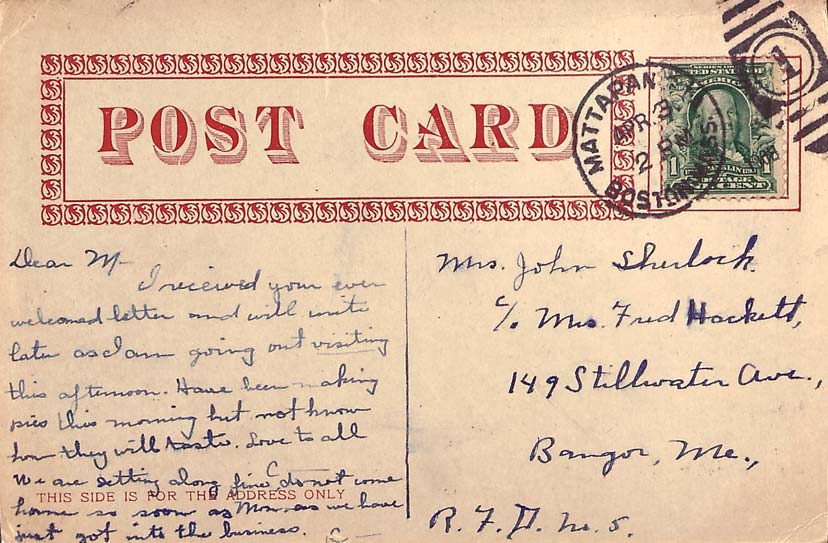 POST CARD
MATTAPAN
APR. 3
2 PM
BOSTON MASS.
1908
1
SERIES
UNITED STATES OF
AMERICA
FRANKLIN
POSTAGE
1 CENT
Dear M
I received your ever
welcomed letter and will write
later as I am going out visiting
this afternoon. Have been making
pies this morning but not know
how they will taste. Love to all
We are getting along fine do not come
THIS SIDE IS FOR THE ADDRESS ONLY
home so soon as Mon. as we have
just got into the business.
C
Mrs. John Sherlock.
c/o Mrs. Fred Hackett,
149 Stillwater Ave.,
Bangor, Me.,
R. F. D. No. 5.